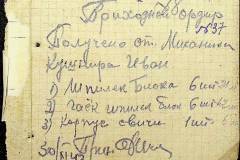 Приходной ордер
№37
Получено от Механика
Кушнира Иван
1) Шпилек блока 6 шт
2) гаек шпилек блок 6 шт
3) Корпус свечи 1 шт
30/